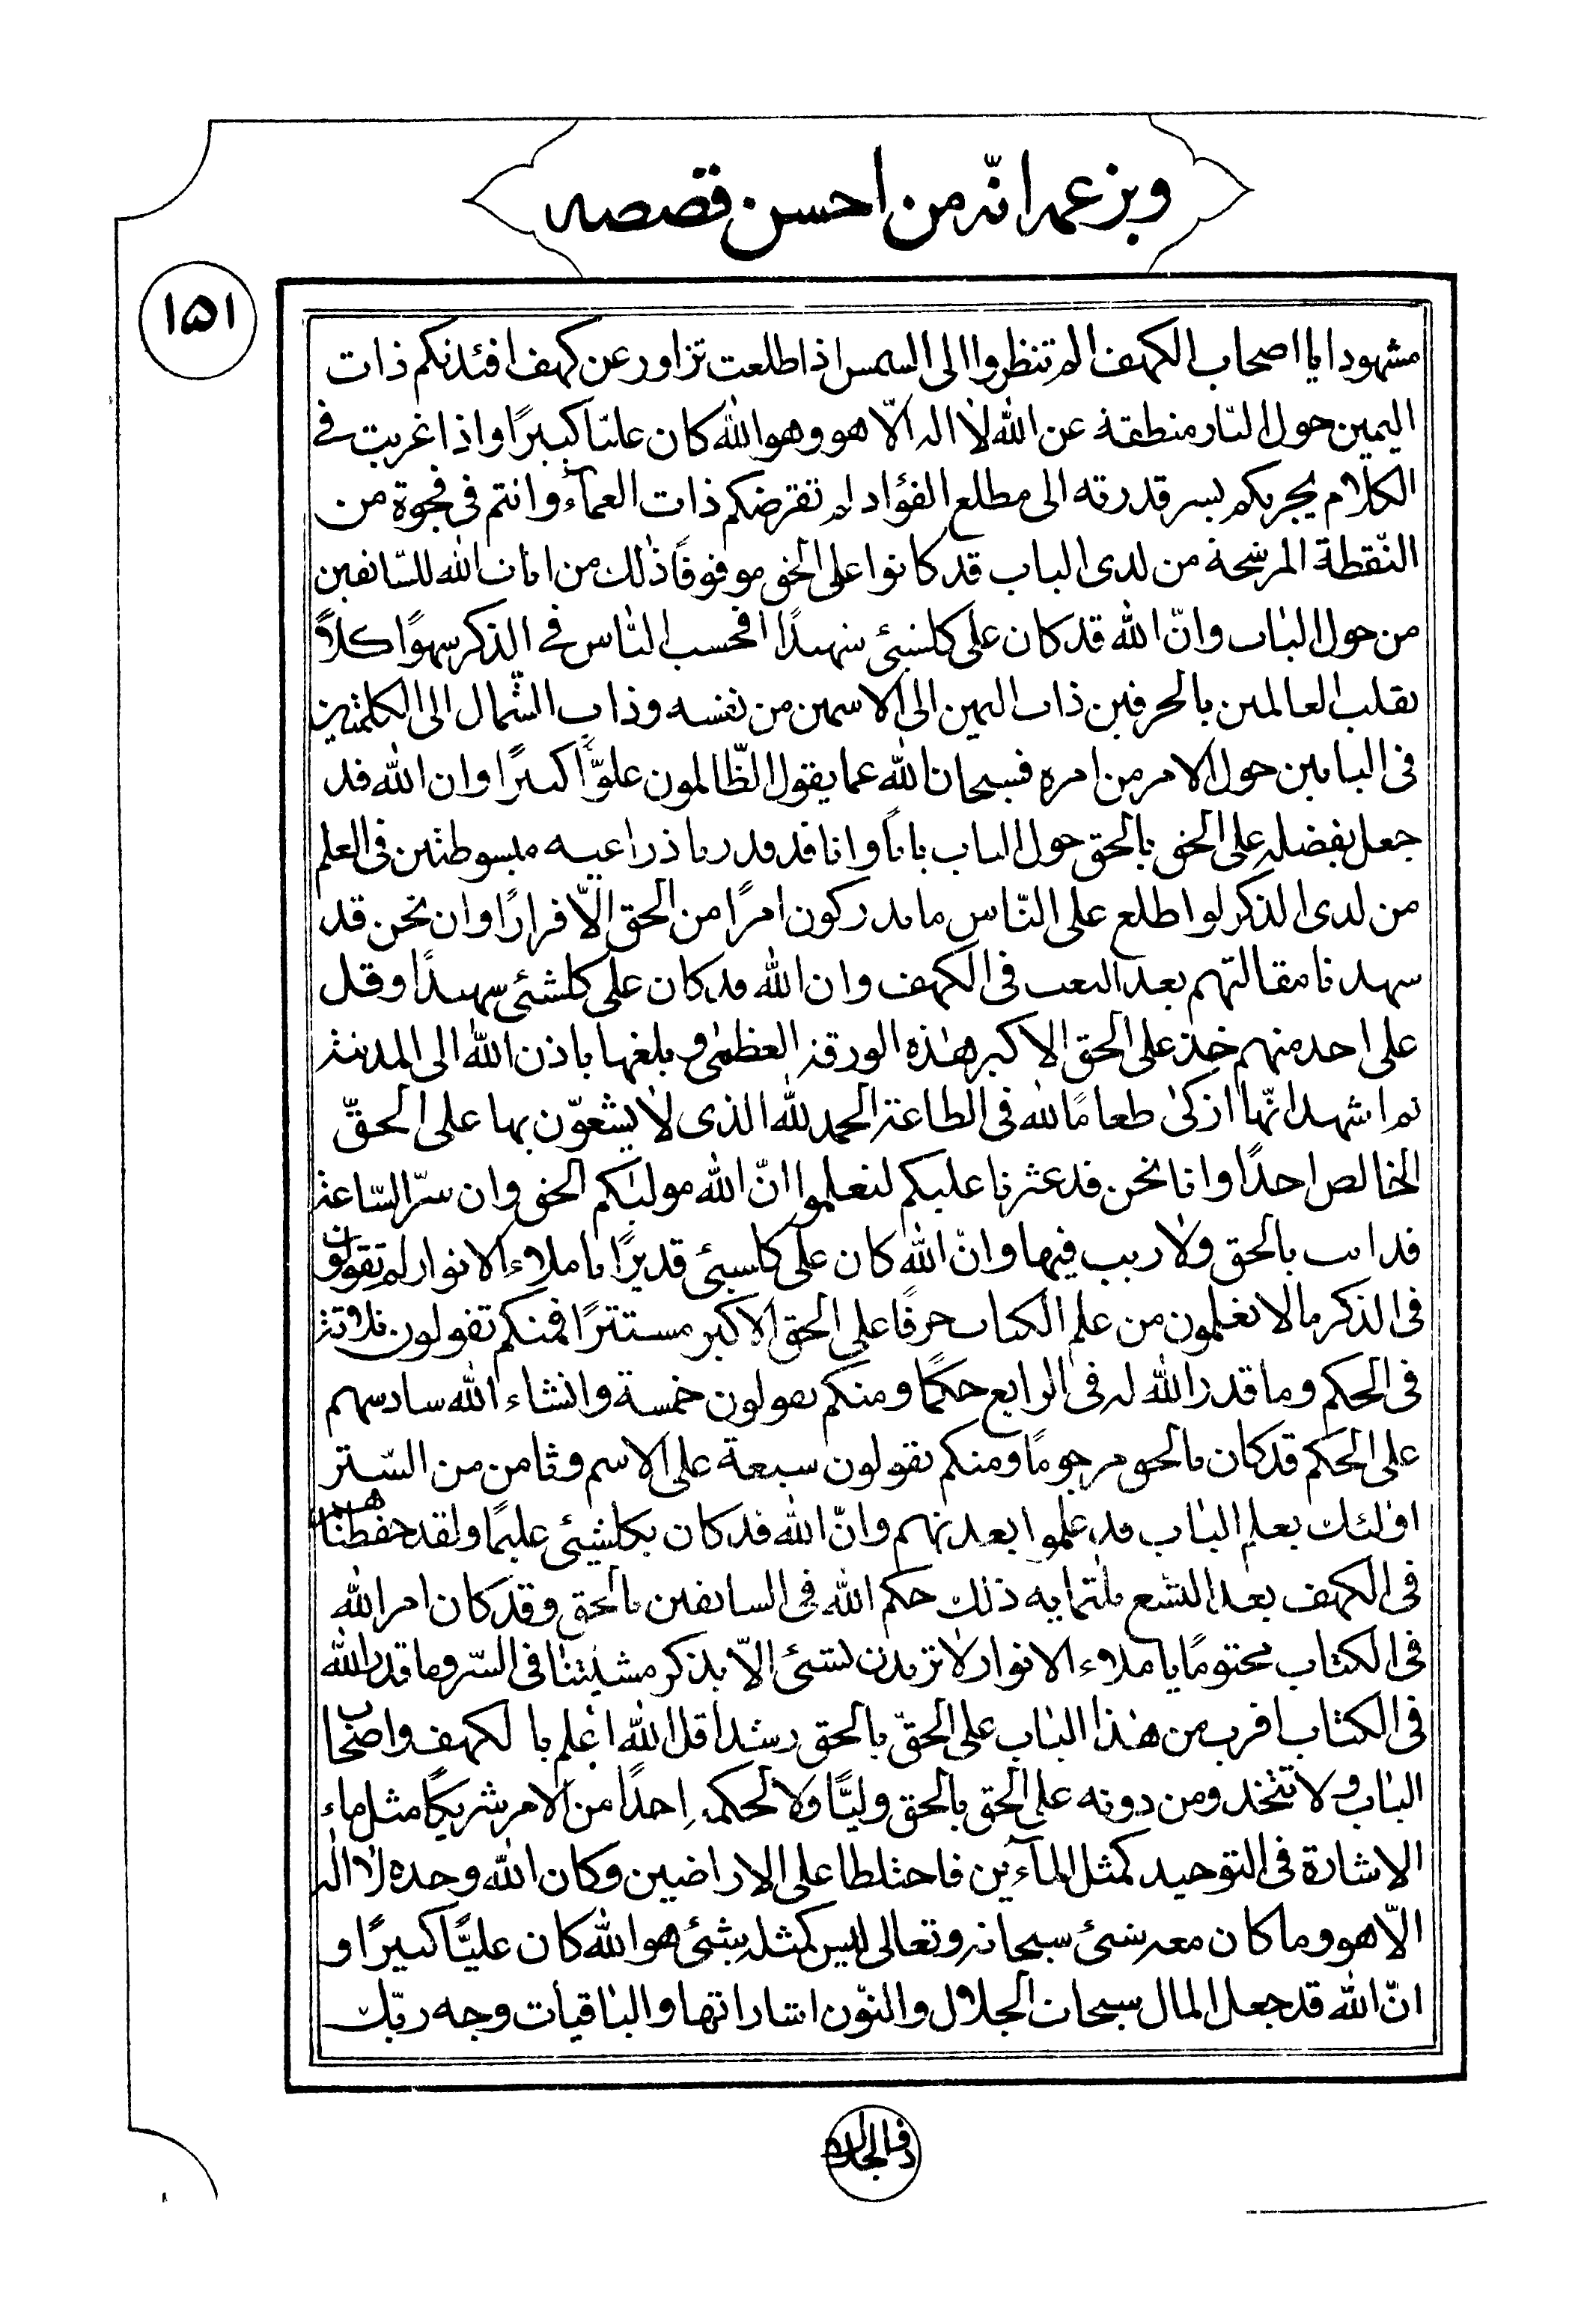 وبزعمه انّه من احسن قصصه
١٥١
مشهودا يا اصحاب الكهف الم تنظروا الى الشمس اذا طلعت تزاور عن كهف افئدتكم ذات
اليمين حول النّار منطقة عن الله لا اله الّا هو وهو الله كان عليّا كبيرًا واذا غربت فى
الكلام يجريكم بسر قدرته الى مطلع الفؤاد لم تقرضكم ذات العمآء وانتم فى فجوة من
النّقطة المرشحة من لدى الباب قد كانوا على الحق موقوفًا ذٰلك من ايات الله للسّائفين
من حول البٰاب وانّ الله قد كان على كلشئى شهيدًا افحسب النّاس فى الذكر سهوًا كلاًّ
يقلب العالمين بالحرفين ذات اليمين الى الاسمين من نفسه وذات الشّمال الى الكلمتين
فى البابين حول الامر من امره فسبحان الله عما يقول الظّالمون علوًّا كبيرًا وان الله قد
جعل بفضله على الحق بالحق حول الباب بابًا وانا قد قدرنا ذراعيه مبسوطتين فى العلم
من لدى الذكر لو اطلع على النّاس ما يدركون امرًا من الحق الّا فرارًا وان نحن قد
شهدنا مقالتهم بعد البعث فى الكهف وان الله قد كان على كلشئى شهيدًا وقل
على احد منهم خذ على الحق الاكبر هٰذه الورقة العظمٰى و بلغها باذن الله الى المدينة
ثم اشهد انّها ازكىٰ طعامًا لله فى الطاعة الحمد لله الذى لا يشعرّن بها على الحقّ
الخالص احدًا وانا نحن قد عثرنا عليكم لتعلموا انّ الله موليٰكم الحق وان سرّ السّاعة
قد اتت بالحق ولا ريب فيها وانّ الله كان على كلشئى قديرًا يا ملاء الانوار لم تقولون
فى الذكر ما لا تعلمون من علم الكتاب حرفًا على الحق الاكبر مستترًا فمنكم تقولون ثلاثة
فى الحكم وما قدر الله له فى الرابع حكمًا ومنكم يقولون خمسة وانشاء الله سادسهم
على الحكم قد كان بالحق مرجومًا ومنكم يقولون سبعة على الاسم وثامن من السّتر
اولئك بعلم البٰاب قد علموا بعدتهم وانّ الله قد كان بكلشيئى عليمًا ولقد حفظناهم
فى الكهف بعد التسع ثلثمايه ذلك حكم الله فى السابقين بالحق وقد كان امر الله
فى الكتاب مختومًا يا ملاء الانوار لا تزيدن لشئى الّا بذكر مشيّتنا فى السّر وما قدر الله
فى الكتاب اقرب من هٰذا البٰاب على الحقّ بالحق رشدا قل الله اعلم بالكهف واصحاب
البٰاب و لا تتخذ ومن دونه على الحق بالحق وليًّا ولا لحكمه احدًا من الامر شريكًا مثل ماء
الاشارة فى التوحيد كمثل المآءين فاختلطا على الاراضيين وكان الله وحده لا اله
الّا هو وما كان معه شئى سبحانه وتعالى ليس كمثله شئى هو الله كان عليًّا كبيرًا و
انّ الله قد جعل المال سبحات الجلال والنوّن اشاراتها والبٰاقيات وجه ربّك